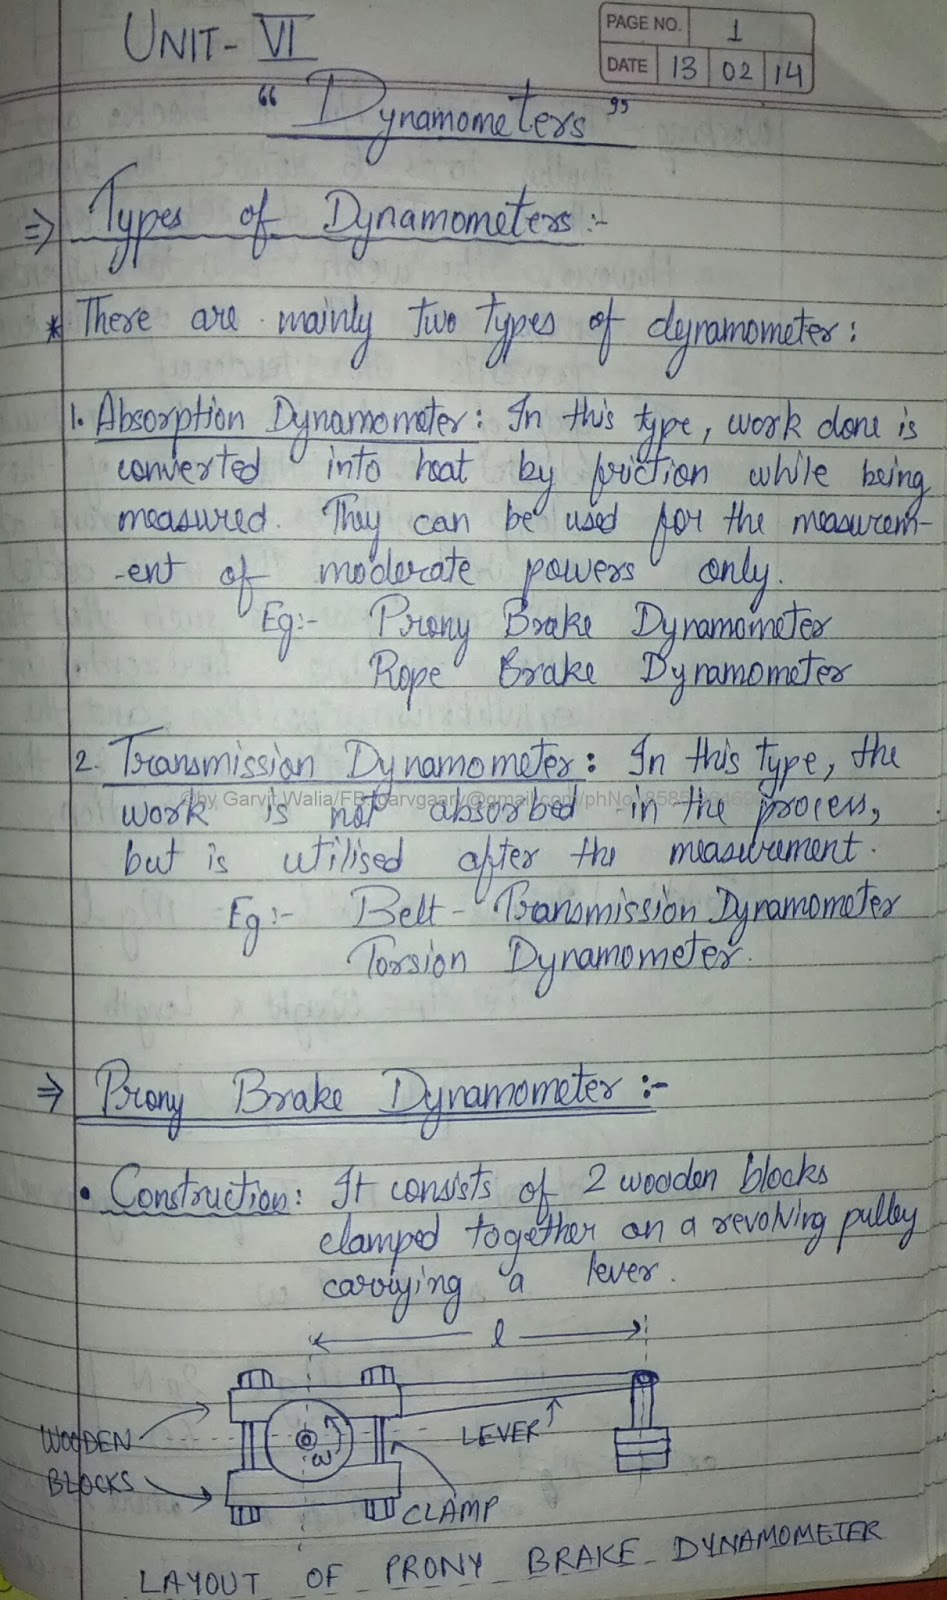 UNIT- VI
PAGE NO. 1
DATE 13 02 14
" Dynamometers "
⇒ Types of Dynamometers:-
* There are mainly two types of dynamometer:
1. Absorption Dynamometer: In this type, work done is
converted into heat by friction while being
measured. They can be used for the measurem-
-ent of moderate powers only.
Eg:- Prony Brake Dynamometer
Rope Brake Dynamometer
2. Transmission Dynamometer: In this type, the
©by Garvit Walia/FB:
work is not absorbed in the process,
but is utilised after the measurement.
Eg:- Belt-Transmission Dynamometer
Torsion Dynamometer.
⇒ Prony Brake Dynamometer:-
• Construction: It consists of 2 wooden blocks
clamped together on a revolving pulley
carrying a lever.
l
WOODEN
BLOCKS
ω
LEVER
CLAMP
LAYOUT OF PRONY BRAKE DYNAMOMETER